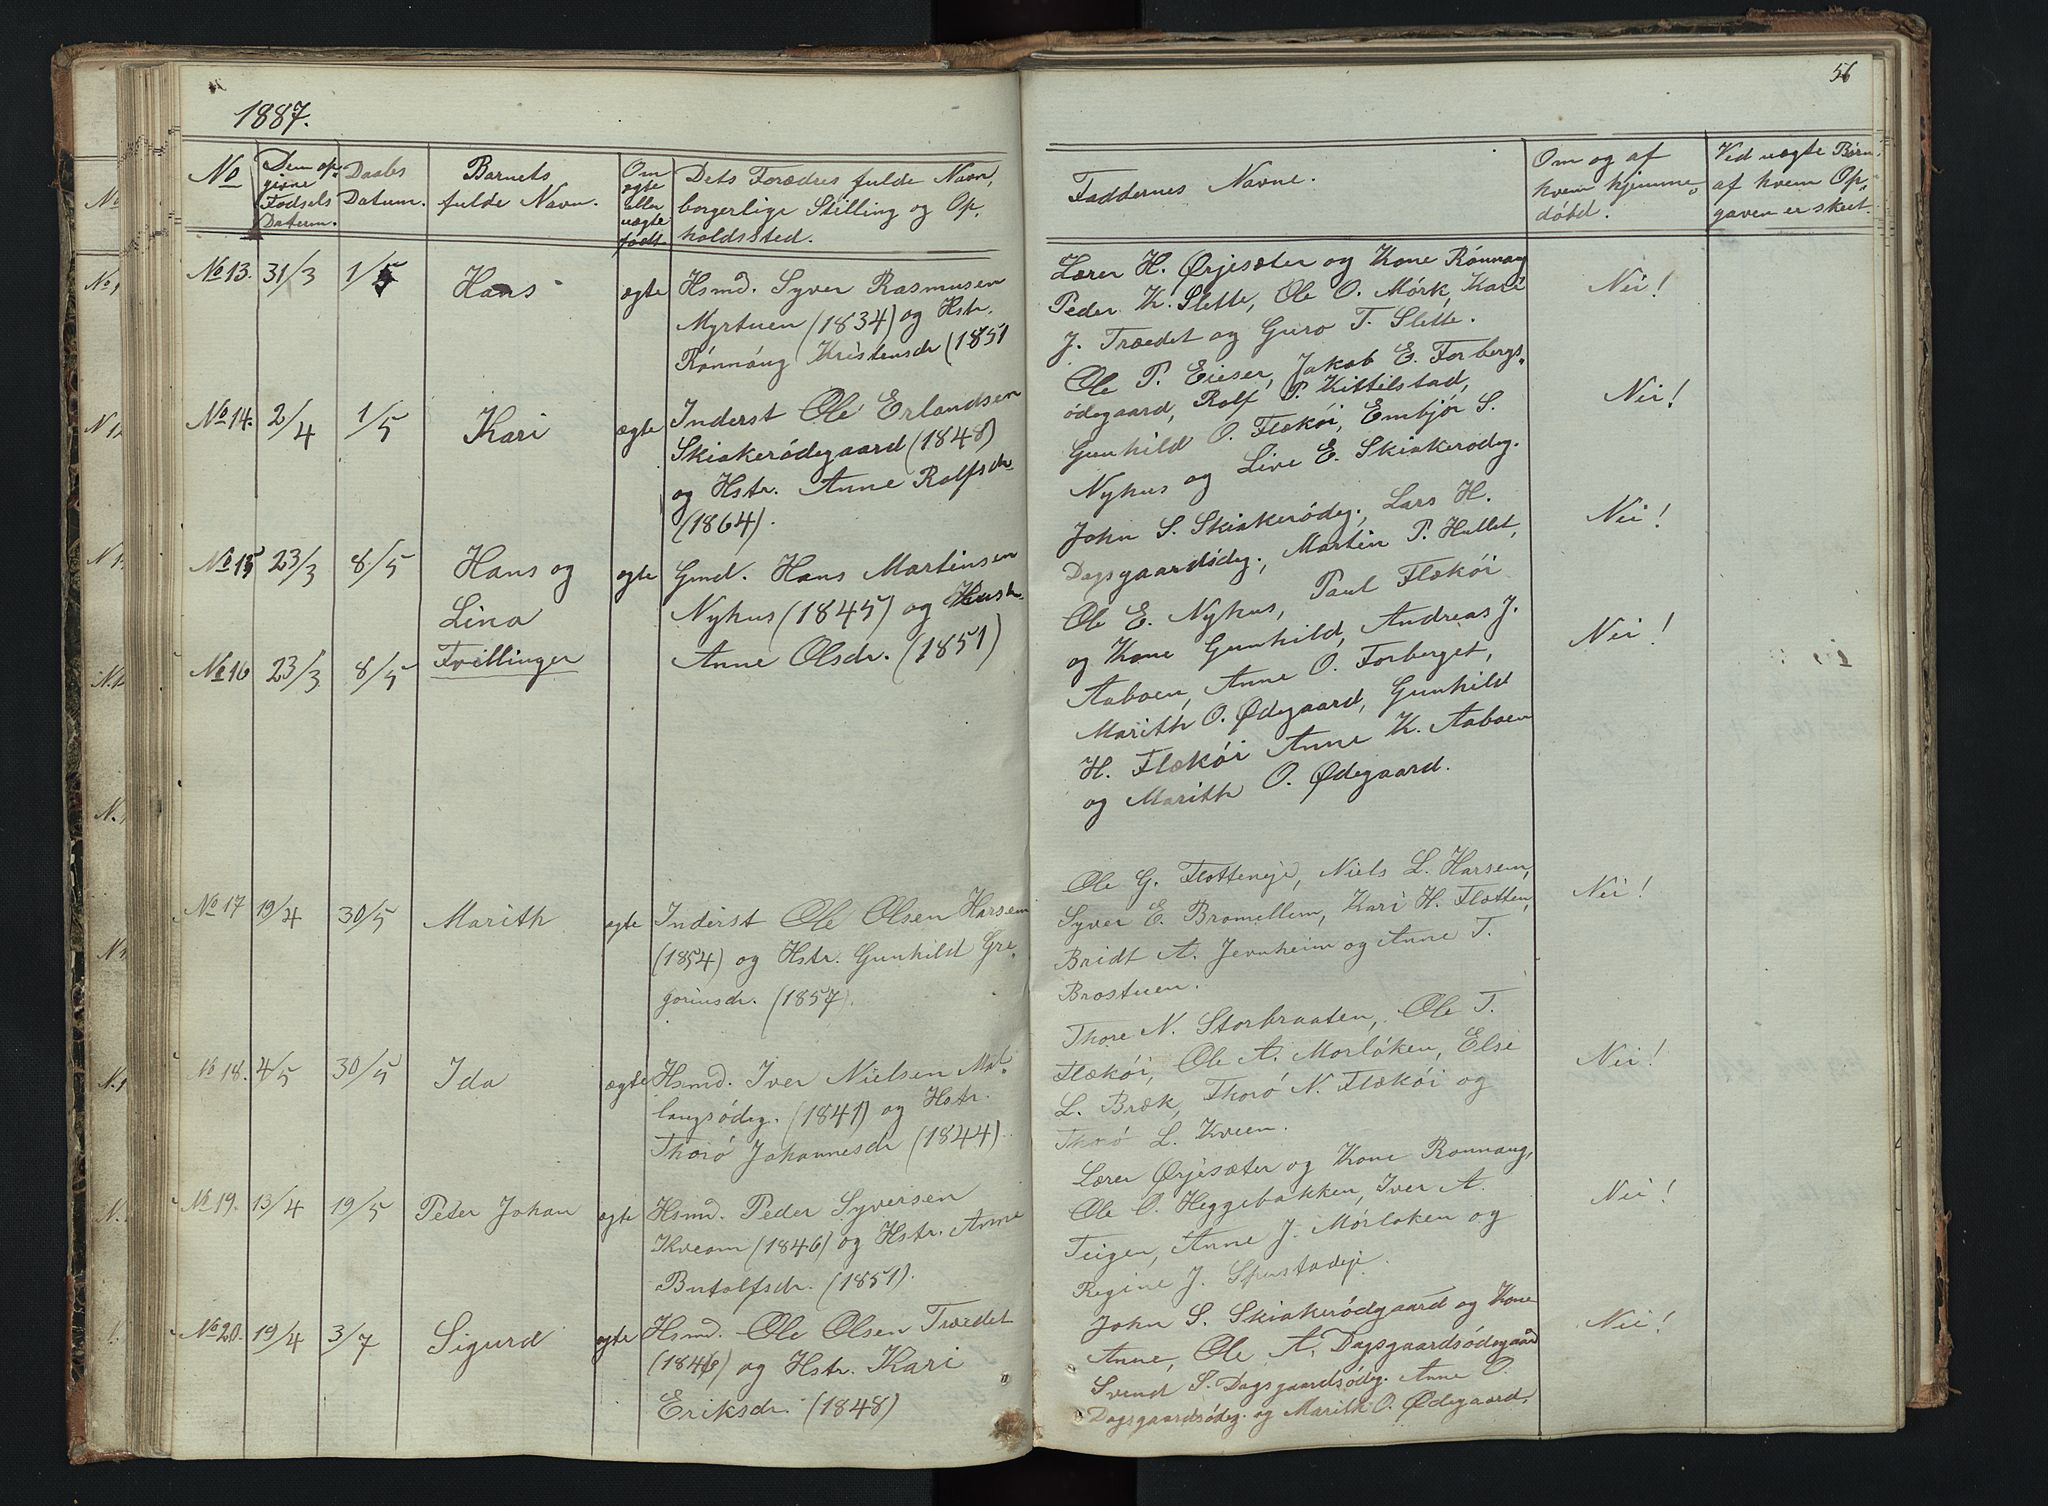 1887.
No
Den op-
givne
Fødsels
Datum.
Daabs
Datum.
Barnets
fulde Navn.
Om
ægte
eller
uægte
født.
Dets Forædres fulde Navn,
borgerlige Stilling og Op-
holdssted.
No 13. 31/3 1/5 Hans ægte Hsmd. Syver Rasmusen
Myrtuen (1834) og Hstr.
Rónnóug Kristensdr (1851
No 14. 2/4 1/5 Kari ægte Inderst Ole Erlandsen
Skiakerødegaard (1848)
og Hstr. Anne Rolfsdr
(1864).
No 15 23/3 8/5 Hans og ægte Gmd. Hans Martinsen
Lina Nyhus (1845) og Hustr.
No 16 23/3 8/5 Tvillinger Anne Olsdr. (1851)
No 17 19/4 30/5 Marith ægte Inderst Ole Olsen Harsem
(1854) og Hstr. Gunhild Gre-
goriusdr. (1857).
No 18. 4/5 30/5 Ida ægte Hsmd. Iver Nielsen
langsódeg. (1841) og Hstr.
Thoró Johannesdr (1844).
No 19. 13/4 19/5 Peter Johan ægte Hsmd. Peder Syversen
Kveom (1846) og Hstr. Anne
Butolfsdr. (1851).
No 20. 19/4 3/7 Sigurd ægte Hsmd. Ole Olsen Træedet
(1846) og Hstr. Kari
Eriksdr. (1848)
56
Faddernes Navne.
Om og af
hvem hjemme-
dóbt.
Ved uægte Børn
af hvem Op-
gaven er skeet.
Lærer H. Ørjesæter og Kone Rónnaug
Peder K. Slette, Ole O. Mórk, Kari
J. Træedet og Guro T. Slette.
Nei!
Ole P. Eieser, Jakob E. Forbergs-
ódegaard, Rolf P. Kittilstad,
Gunhild O. Flækói, Embjór S.
Nyhus og Live E. Skiakeródeg.
Nei!
John S. Skiakeródeg., Lars H.
Dagsgaardsódeg., Martin P. Hullet,
Ole E. Nyhus, Paul Flækói
og Kone Gunhild, Andreas J.
Aaboen, Anne O. Forberget,
Marith O. Ødegaard, Gunhild
H. Flækói Anne K. Aaboen
og Marith O. Ødegaard.
Nei!
Nei!
Ole G. Flotteneje, Niels L. Harsem,
Syver E. Bromellem, Kari H. Flotten,
Bridt A. Jernheim og Anne T.
Brostuen.
Nei!
Thore N. Storbraaten, Ole T.
Flækói, Ole A. Morlóken, Else
L. Bræk, Thoró N. Flækói og
Thoró L. Kveen.
Nei!
Lærer Ørjesæter og Kone Ronnaug,
Ole O. Heggebakken, Iver A.
Teigen, Anne J. Mórloken og
Regine J.
Nei!
John S. Skiakeródgaard og Kone
Anne, Ole A. Dagsgaardsódegaard
Svend S. Dagsgaardsódeg. Anne O.
Dagsgaardsódeg. og Marith O. Ødegaard.
Nei!